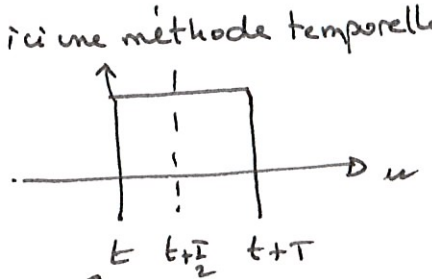 ici une méthode temporelle
u
t t+T/2 t+T